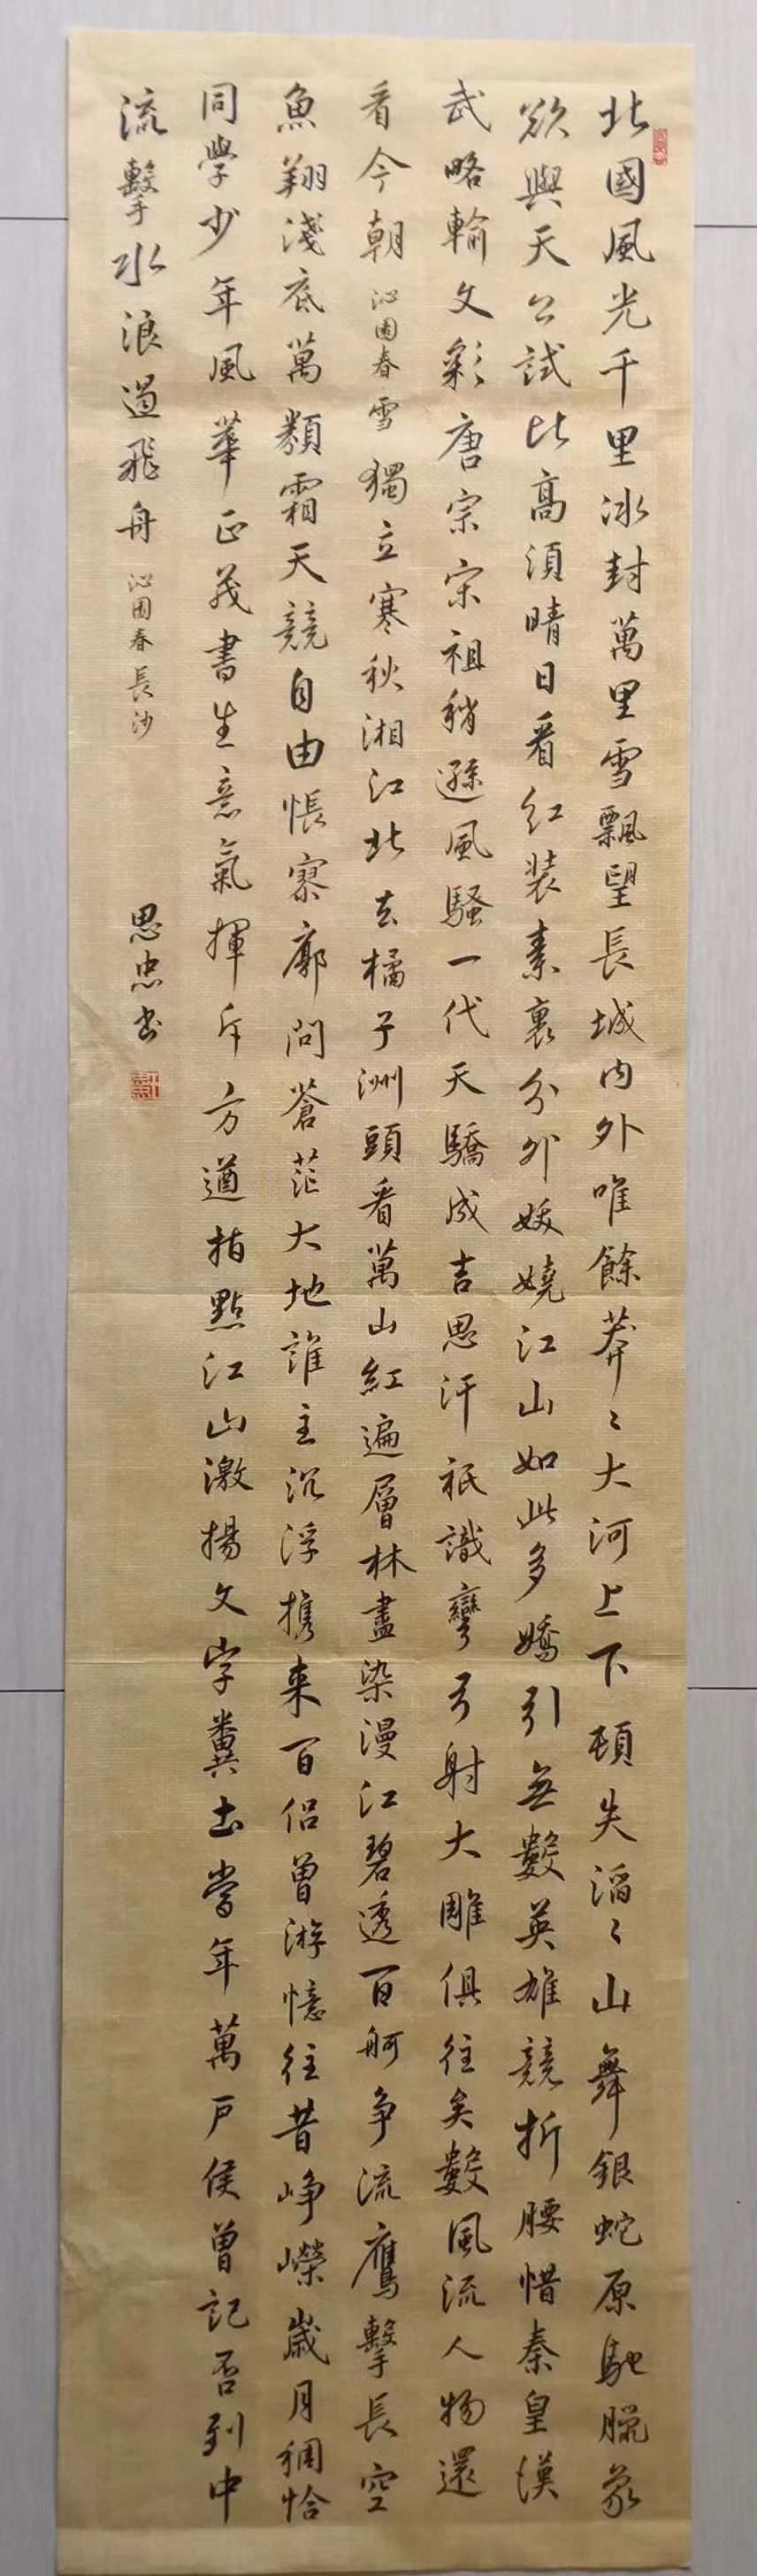 北國風光千里冰封萬里雪飄望長城內外唯餘莽〻大河上下頓失滔〻山舞銀蛇原馳臘象
欲與天公試比高須晴日看红装素裹分外妖嬈江山如此多嬌引無數英雄競折腰惜秦皇漢
武略輸文彩唐宗宋祖稍遜風騷一代天驕成吉思汗祇識彎弓射大雕俱往矣數風流人物還
看今朝 沁園春雪 獨立寒秋湘江北去橘子洲頭看萬山紅遍層林盡染漫江碧透百舸争流鷹擊長空
魚翔淺底萬類霜天競自由悵寥廓問蒼茫大地誰主沉浮携来百侣曾游憶往昔崢嶸歲月稠恰
同學少年風華正茂書生意氣揮斥方遒指點江山激揚文字糞土當年萬戶侯曾記否到中
流擊水浪遏飛舟 沁園春長沙
思忠书